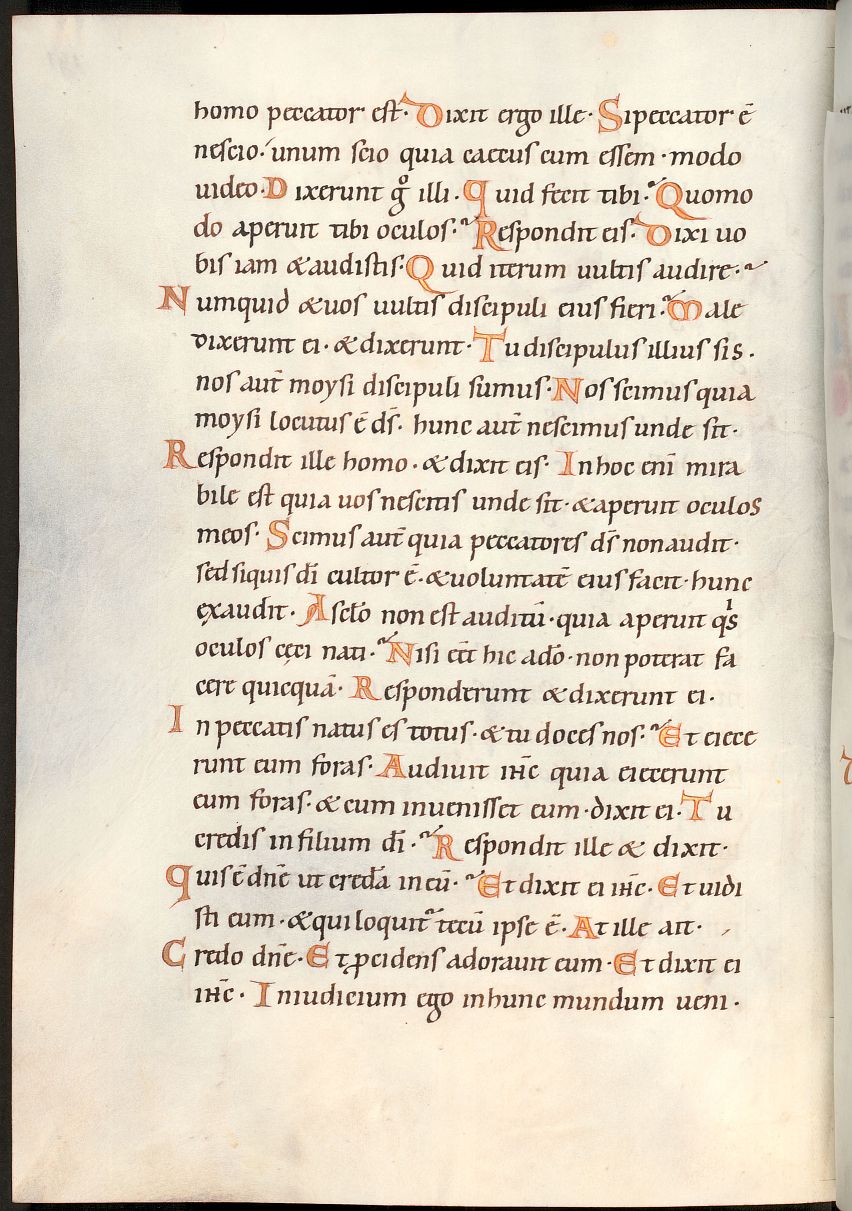 homo peccator est· Dixit ergo ille· Si peccator ē
nescio· unum scio quia caecus cum essem· modo
uideo· Dixerunt gͦ illi· Quid fecit tibi· Quomo
do aperuit tibi oculos· Respondit eis· Dixi uo
bis iam & audistis· Quid iterum uultis audire·
Numquid & uos uultis discipuli eius fieri· Male
dixerunt ei· & dixerunt· Tu discipulus illius sis·
nos aut̄ moysi discipuli sumus· Nos scimus quia
moysi locutus ē d̄s· hunc aut̄ nescimus unde sit·
Respondit ille homo· & dixit eis· In hoc enī mira
bile est quia uos nescitis unde sit· & aperuit oculos
meos· Scimus aut̄ quia peccatores d̄s non audit·
sed siquis d̄i cultor ē· & uoluntatē eius facit· hunc
exaudit· A sc̄lo non est auditū· quia aperuit qͥs
oculos cęci nati· Nisi eēt hic a dō· non poterat fa
cere quicquā· Responderunt & dixerunt ei·
In peccatis natus es totus· & tu doces nos· Et eiece
runt eum foras· Audiuit ihc̄ quia eiecerunt
eum foras· & cum inuenisset eum· dixit ei· Tu
credis in filium d̄i· Respondit ille & dixit·
Quis ē dn̄e ut credā in eū· Et dixit ei ihc̄· Et uidi
sti eum· & qui loquit᷑ tecū ipse ē· At ille ait·
Credo dn̄e· Et ꝓcidens adorauit eum· Et dixit ei
ihc̄· In iudicium ego in hunc mundum ueni·